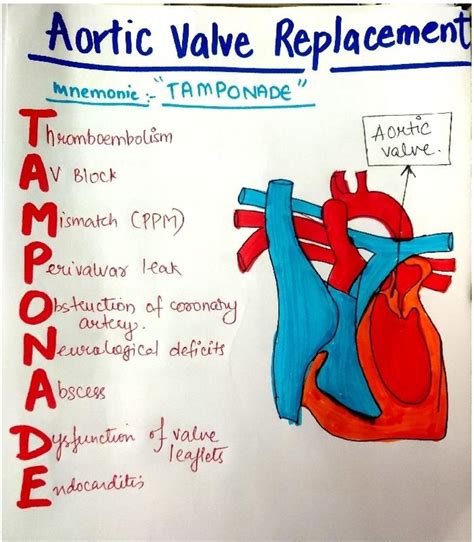 Aortic Valve Replacement
Mnemonic :- "TAMPONADE"
Thromboembolism
AV Block
Mismatch (PPM)
Perivalvar leak
Obstruction of coronary
artery.
Neurological deficits
Abscess
Dysfunction of valve
leaflets
Endocarditis
Aortic
valve.